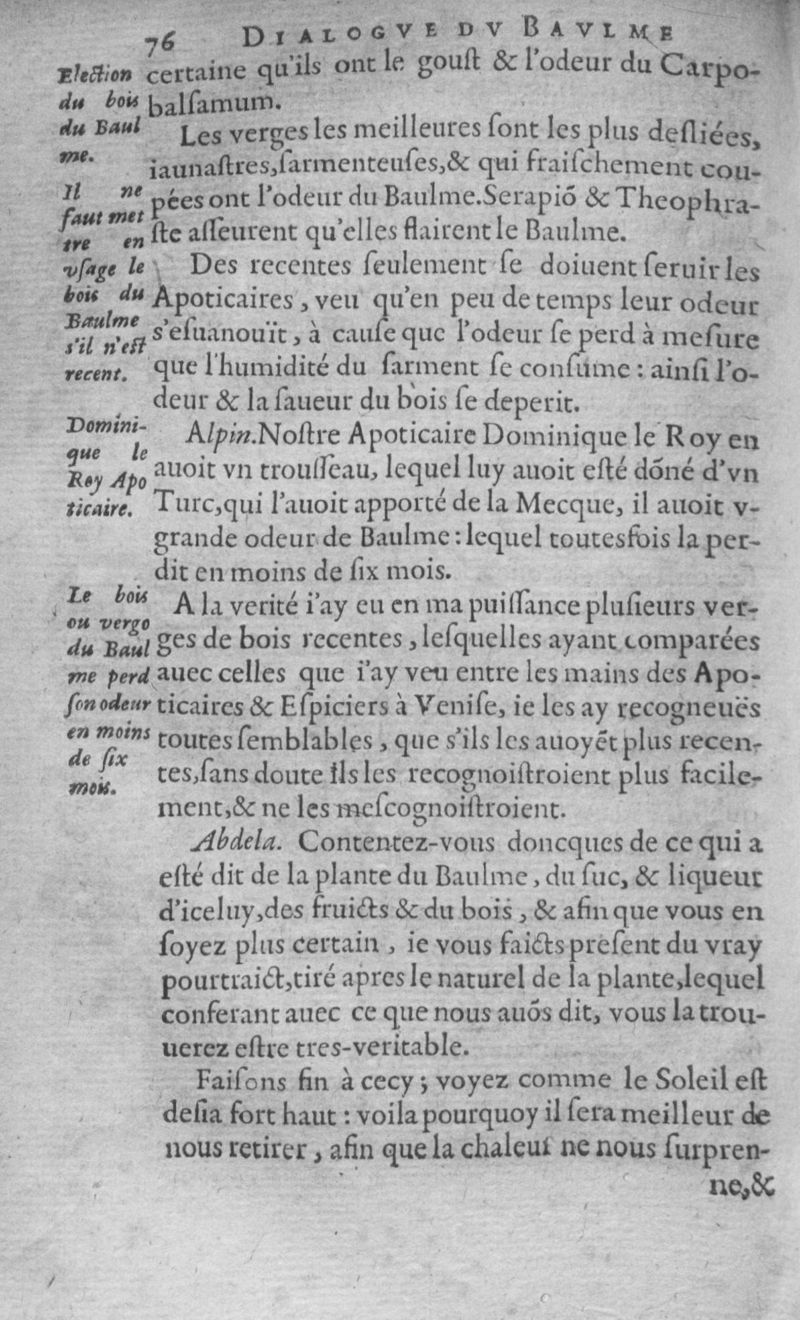 76 DIALOGVE DV BAVLME
certaine qu'ils ont le gouſt & l'odeur du Carpo-
balſamum.
Les verges les meilleures ſont les plus deſliées,
iaunaſtres,ſarmenteuſes,& qui fraiſchement cou-
pées ont l'odeur du Baulme.Serapiõ & Theophra-
ſte aſſeurent qu'elles flairent le Baulme.
Des recentes ſeulement ſe doiuent ſeruir les
Apoticaires , veu qu'en peu de temps leur odeur
s'eſuanouït , à cauſe que l'odeur ſe perd à meſure
que l'humidité du ſarment ſe conſume : ainſi l'o-
deur & la ſaueur du bois ſe deperit.
Alpin.Noſtre Apoticaire Dominique le Roy en
auoit vn trouſſeau, lequel luy auoit eſté dõné d'vn
Turc,qui l'auoit apporté de la Mecque, il auoit v-
grande odeur de Baulme : lequel toutesfois la per-
dit en moins de ſix mois.
A la verité i'ay eu en ma puiſſance pluſieurs ver-
ges de bois recentes , leſquelles ayant comparées
auec celles que i'ay veu entre les mains des Apo-
ticaires & Eſpiciers à Veniſe, ie les ay recogneuës
toutes ſemblables , que s'ils les auoyẽt plus recen-
tes,ſans doute ils les recognoiſtroient plus facile-
ment,& ne les meſcognoiſtroient.
Abdela. Contentez-vous doncques de ce qui a
eſté dit de la plante du Baulme , du ſuc, & liqueur
d'iceluy,des fruicts & du bois , & afin que vous en
ſoyez plus certain , ie vous faicts preſent du vray
pourtraict,tiré apres le naturel de la plante,lequel
conferant auec ce que nous auõs dit, vous la trou-
uerez eſtre tres-veritable.
Faiſons fin à cecy ; voyez comme le Soleil eſt
deſia fort haut : voila pourquoy il ſera meilleur de
nous retirer , afin que la chaleur ne nous ſurpren-
ne,&
Election
du bois
du Baul
me.
Il ne
faut met
tre en
vſage le
bois du
Baulme
s'il n'eſt
recent.
Domini-
que le
Roy Apo
ticaire.
Le bois
ou vergo
du Baul
me perd
ſon odeur
en moins
de ſix
mois.